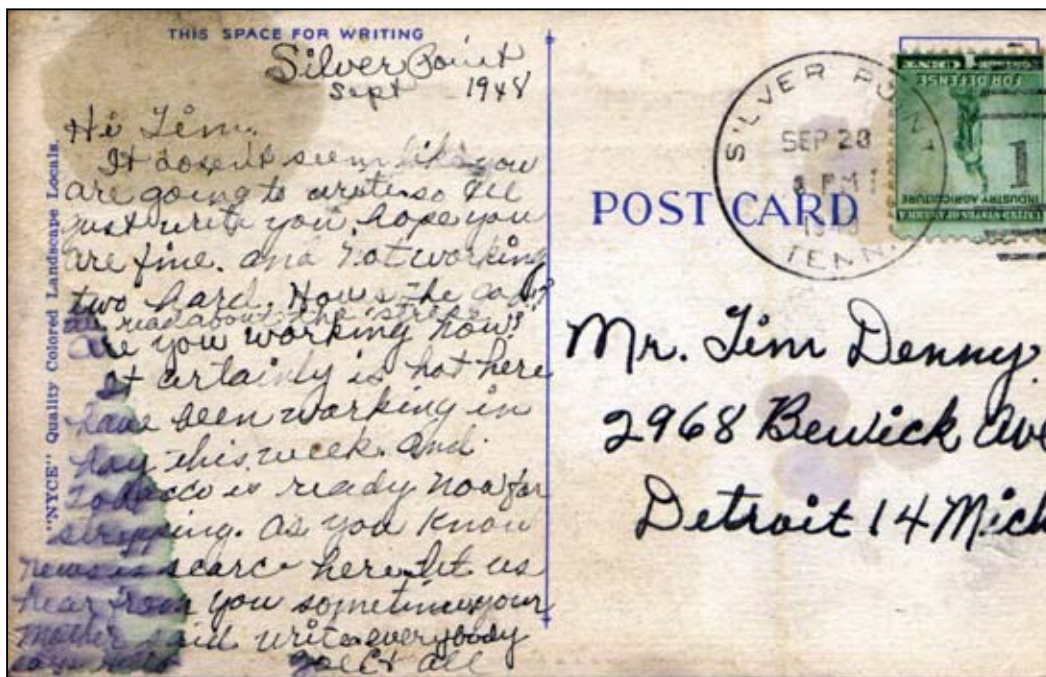 THIS SPACE FOR WRITING
Silver Point
Sept 1948
Hi Jim,
It dosen't seem like you
are going to write so Ill
just write you, hope you
are fine. and not working
two hard. How's the
read about the strike
are you working now?
It certainly is hot here
have been working in
hay this week. and
Tobacco is ready now for
stripping. as you know
news is scarce here. let us
hear from you sometime. your
mother said write everybody
says hello
& all
"NYCE" Quality Colored Landscape Locals.
POST CARD
SILVER POINT
SEP 28
PM
TENN.
1 CENT
FOR DEFENSE
1
INDUSTRY AGRICULTURE
UNITED STATES OF AMERICA
Mr. Jim Denny
2968 Bewick Ave
Detroit 14 Mich